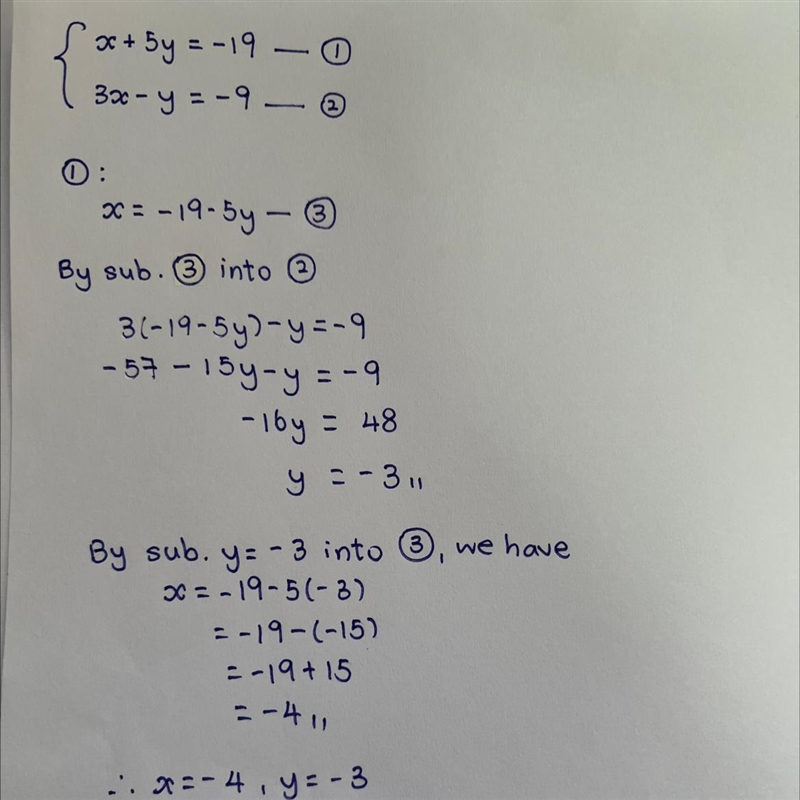 x + 5y = -19 — ①
3x - y = -9 — ②
① :
x = -19 - 5y — ③
By sub. ③ into ②
3(-19 - 5y) - y = -9
-57 - 15y - y = -9
-16y = 48
y = -3 ,,
By sub. y = -3 into ③, we have
x = -19 - 5(-3)
= -19 - (-15)
= -19 + 15
= -4 ,,
∴ x = -4 , y = -3